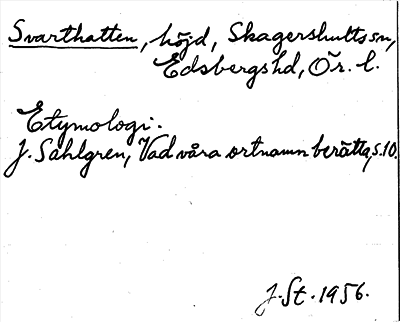 Svarthatten, höjd, Skagershults sn,
Edsbergs hd, Ör. l.
Etymologi.
J. Sahlgren, Vad våra ortnamn berätta, s. 10.
J. St. 1956.